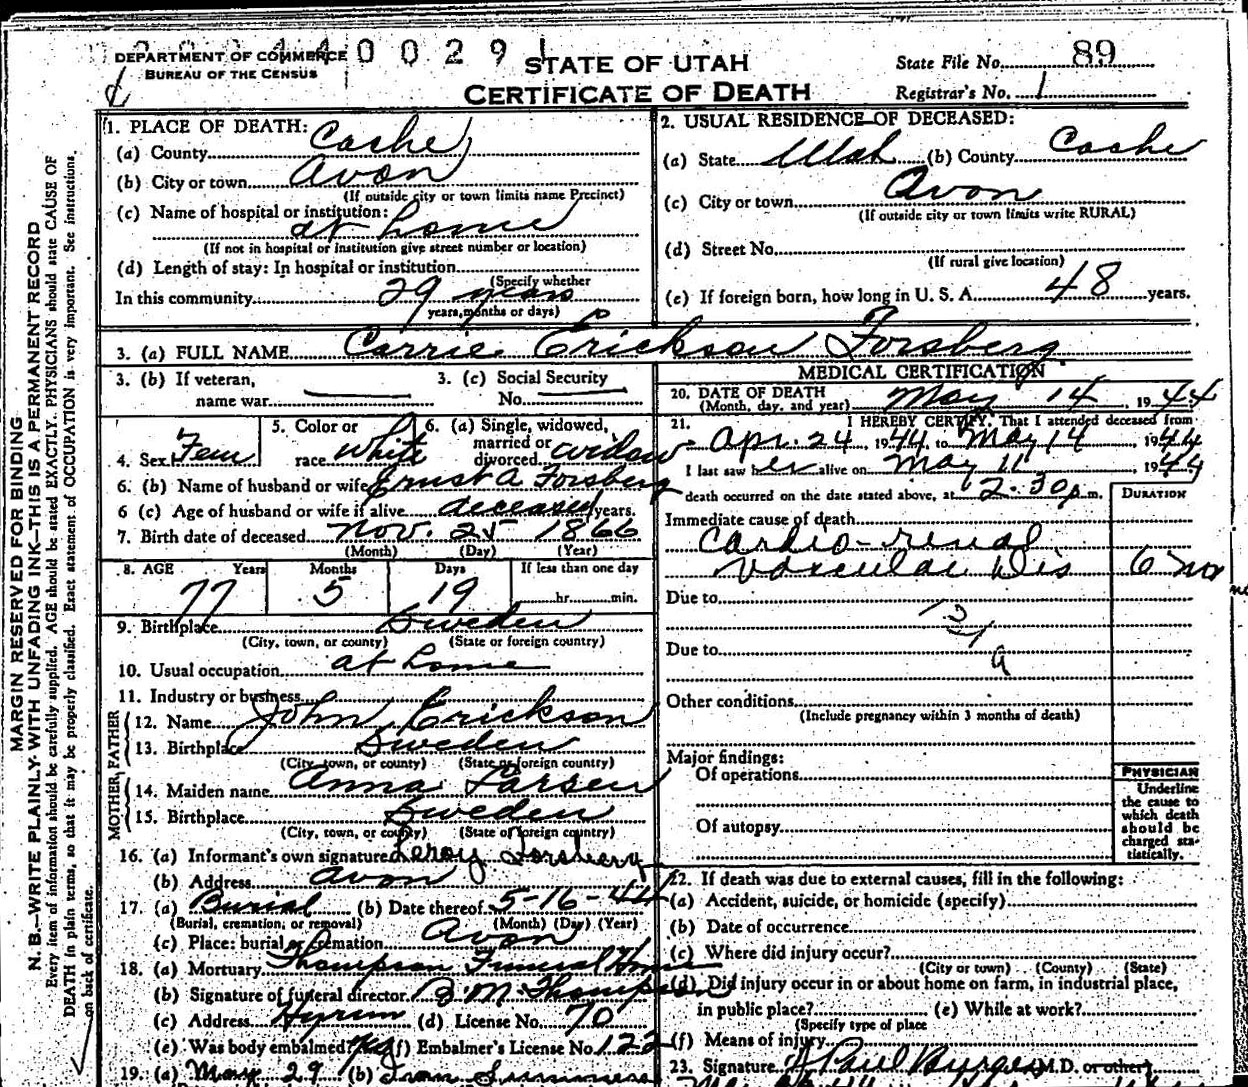 2 0 0 4 4 0 0 2 9 1
DEPARTMENT OF COMMERCE
BUREAU OF THE CENSUS
STATE OF UTAH
CERTIFICATE OF DEATH
State File No. 89
Registrar's No. 1
MARGIN RESERVED FOR BINDING
N. B.—WRITE PLAINLY WITH UNFADING INK—THIS IS A PERMANENT RECORD
Every item of information should be carefully supplied. AGE should be stated EXACTLY. PHYSICIANS should state CAUSE OF
DEATH in plain terms, so that it may be properly classified. Exact statement of OCCUPATION is very important. See instructions
on back of certificate.
1. PLACE OF DEATH:
(a) County Cache
(b) City or town Avon
(If outside city or town limits name Precinct)
(c) Name of hospital or institution:
at home
(If not in hospital or institution give street number or location)
(d) Length of stay: In hospital or institution
(Specify whether
In this community 29 years
years, months or days)
2. USUAL RESIDENCE OF DECEASED:
(a) State Utah (b) County Cache
(c) City or town Avon
(If outside city or town limits write RURAL)
(d) Street No.
(If rural give location)
(e) If foreign born, how long in U. S. A. 48 years.
3. (a) FULL NAME Carrie Erickson Forsberg
3. (b) If veteran,
name war
3. (c) Social Security
No.
4. Sex Fem
5. Color or
race white
6. (a) Single, widowed,
married or
divorced widow
6. (b) Name of husband or wife Ernst A Forsberg
6 (c) Age of husband or wife if alive deceased years.
7. Birth date of deceased Nov. 25 1866
(Month) (Day) (Year)
8. AGE Years Months Days If less than one day
77 5 19 hr. min.
9. Birthplace Sweden
(City, town, or county) (State or foreign country)
10. Usual occupation at home
11. Industry or business
FATHER
12. Name John Erickson
13. Birthplace Sweden
(City, town, or county) (State or foreign country)
MOTHER
14. Maiden name Anna Larsen
15. Birthplace Sweden
(City, town, or county) (State or foreign country)
16. (a) Informant's own signature Leroy Forsberg
(b) Address Avon
17. (a) Burial (b) Date thereof 5-16-44
(Burial, cremation, or removal) (Month) (Day) (Year)
(c) Place: burial or cremation Avon
18. (a) Mortuary Thompson Funeral Home
(b) Signature of funeral director B. M. Thompson
(c) Address Hyrum (d) License No. 70
(e) Was body embalmed? Yes (f) Embalmer's License No. 122
19. (a) May 29 (b)
MEDICAL CERTIFICATION
20. DATE OF DEATH
(Month, day, and year) May 14, 1944
21. I HEREBY CERTIFY, That I attended deceased from
Apr. 24, 1944 to May 14, 1944
I last saw her alive on May 11, 1944
death occurred on the date stated above, at 12.30 p.m.
DURATION
Immediate cause of death
Cardio-renal
vascular dis 6 mo
Due to
Due to
Other conditions
(Include pregnancy within 3 months of death)
Major findings:
Of operations
Of autopsy
PHYSICIAN
Underline
the cause to
which death
should be
charged sta-
tistically.
22. If death was due to external causes, fill in the following:
(a) Accident, suicide, or homicide (specify)
(b) Date of occurrence
(c) Where did injury occur?
(City or town) (County) (State)
(d) Did injury occur in or about home on farm, in industrial place,
in public place? (e) While at work?
(Specify type of place
(f) Means of injury
23. Signature Paul Burgess (M.D. or other)